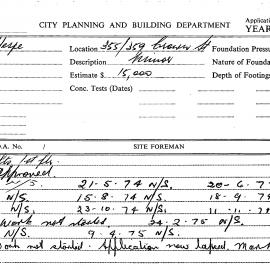 CITY PLANNING AND BUILDING DEPARTMENT Application
YEAR
Location 355/359 Crown St Foundation Pressu
Description Nature of Founda
Estimate $ 15,000 Depth of Footings
Conc. Tests (Dates)
D.A. No. / SITE FOREMAN
1st flr.
Approved.
21-5-74 N/S. 20-6-7
N/S. 15-8-74 N/S. 18-9-7
N/S. 23-10-74 N/S. 11-11-7
Work not started. 24-2-75 N/S.
N/S. 9-4-75 N/S.
Work not started. Application now lapsed.